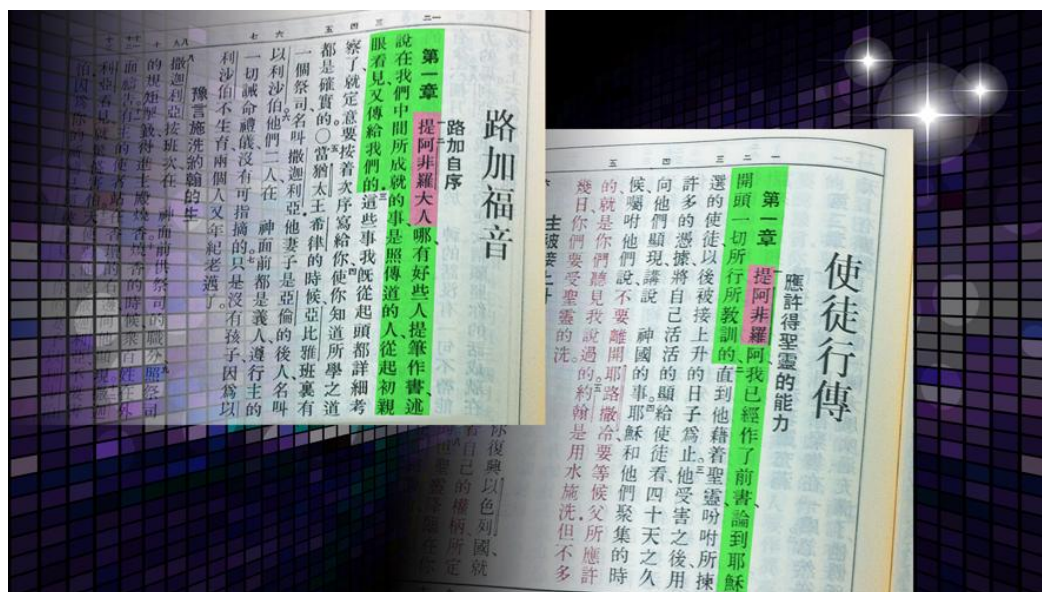 路加福音
路加自序
第一章 提阿非羅大人哪、有好些人提筆作書、述
說在我們中間所成就的事、是照傳道的人、從起初親
眼看見、又傳給我們的這些事我既從起頭都詳細考
察了、就定意要按着次序寫給你、使你知道所學之道
都是確實的。○當猶太王希律的時候、亞比雅班裏有
一個祭司、名叫撒迦利亞、他妻子是亞倫的後人、名叫
以利沙伯。他們二人在 神面前都是義人、遵行主的
一切誡命禮儀、沒有可指摘的、只是沒有孩子、因爲以
利沙伯不生育、兩個人又年紀老邁了。
豫言施洗的約翰的生
撒迦利亞按班次在 神面前供祭司的職分、照祭司
的規矩掣籤、得進主殿燒香。燒香的時候、衆百姓在外
使徒行傳
應許得聖靈的能力
第一章 提阿非羅阿、我已經作了前書、論到耶穌
開頭一切所行所教訓的、直到他藉着聖靈、吩咐所揀
選的使徒、以後被接上升的日子爲止。他受害之後、用
許多的憑據、將自己活活的顯給使徒看、四十天之久
向他們顯現、講說 神國的事。耶穌和他們聚集的時
候、囑咐他們說、不要離開耶路撒冷、要等候父所應許
的、就是你們聽見我說過的。約翰是用水施洗、但不多
幾日、你們要受聖靈的洗。
你復興以色列國、就
自己的權柄、所定